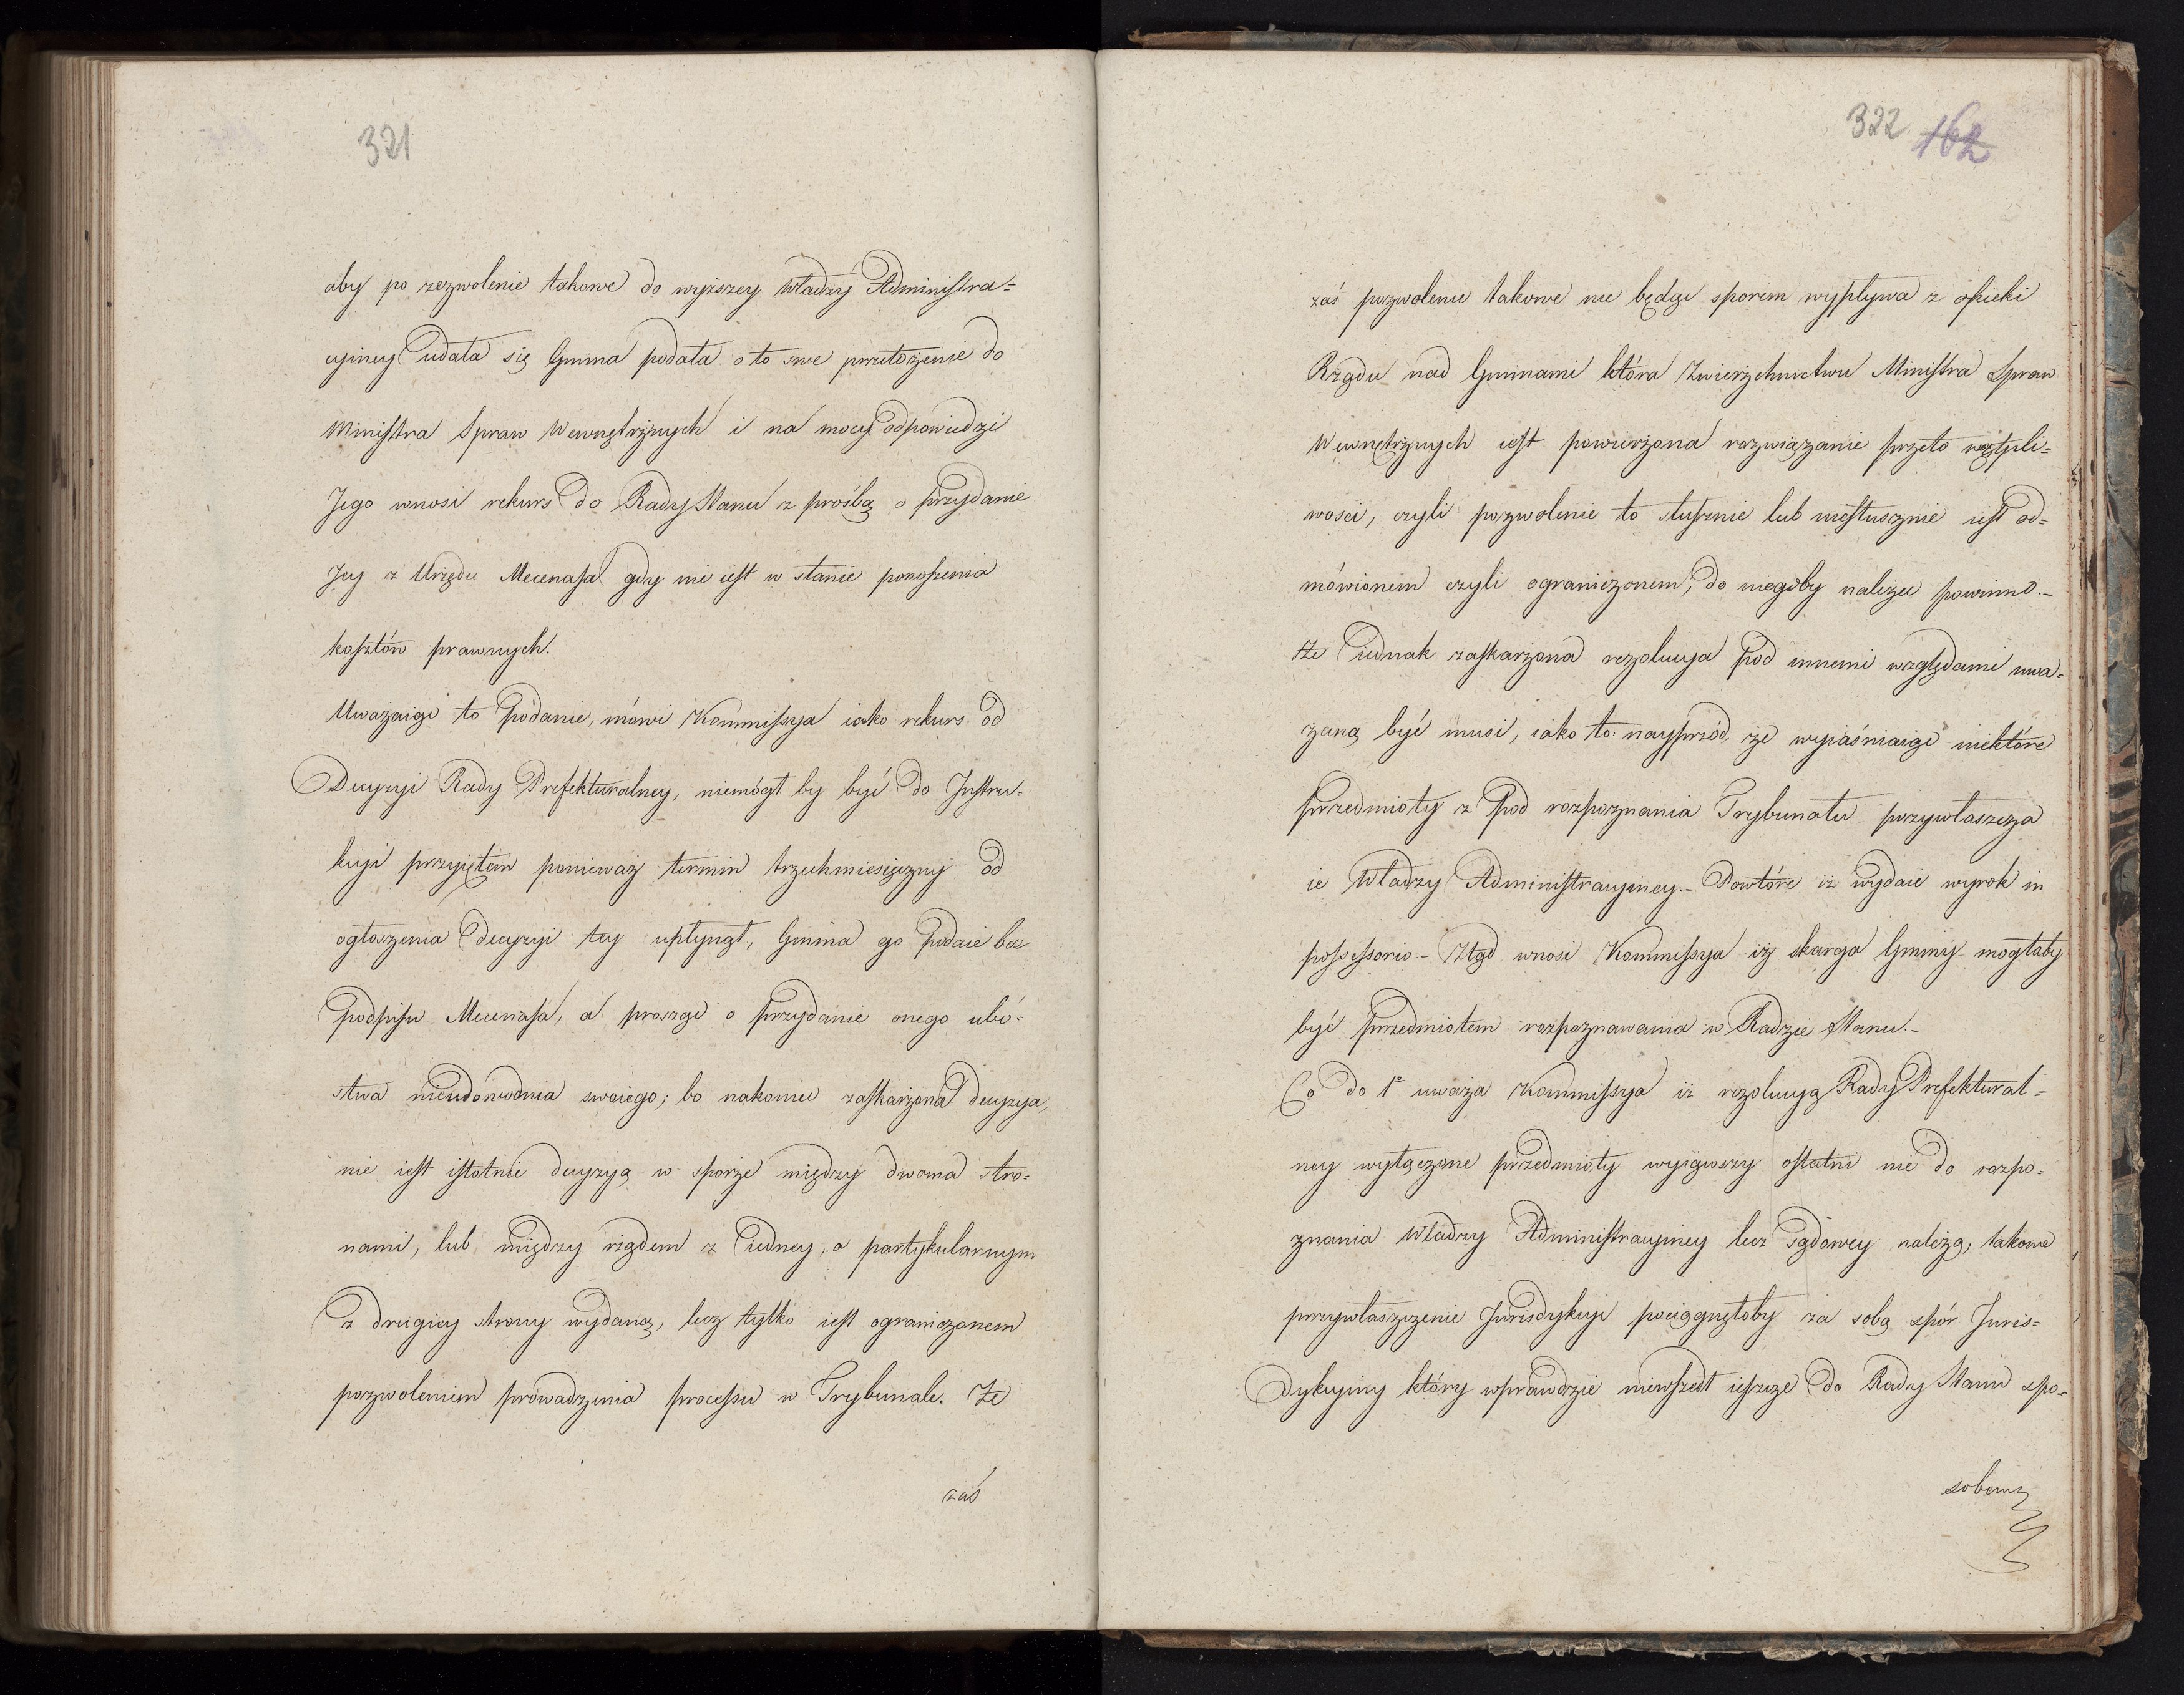 321
aby po zezwolenie takowe do wyższey Władzy Administra=
cyiney udała się Gmina podała o to swe przełożenie do
Ministra Spraw Wewnętrznych i na mocy odpowiedzi
Jego wnosi rekurs do Rady Stanu z prośbą o przydanie
Jey z Urzędu Mecenasa gdy nie iest w stanie ponoszenia
kosztów prawnych.
Uważaiąc to podanie, mówi Kommissya iako rekurs od
Decyzyi Rady Prefekturalney, niemógł by być do Instru=
kcyi przyiętem ponieważ termin trzechmiesięczny od
ogłoszenia decyzyi tey upłynął, Gmina go podaie bez
podpisu Mecenasa, a prosząc o przydanie onego ubó=
stwa nieudowodnia swoiego; bo nakoniec zaskarżona decyzya,
nie iest istotnie decyzyą w sporze między dwoma stro=
nami, lub między rządem z iedney, a partykularnym
z drugiey strony wydaną, lecz tylko iest ograniczonem
pozwoleniem prowadzenia processu w Trybunale. Że
zaś
322 162
zaś pozwolenie takowe nie będąc sporem wypływa z opieki
Rządu nad Gminami która Zwierzchnictwu Ministra Spraw
Wewnętrznych iest powierzona rozwiązanie przeto wątpli=
wości, czyli pozwolenie to słusznie lub niesłusznie iest od=
mówionem czyli ograniczonem, do niegoby należeć powinno.-
Że iednak zaskarżona rezolucya pod innemi względami uwa=
żaną być musi, iako to: nayprzód, że wyiaśniaiąc niektóre
przedmioty z pod rozpoznania Trybunału przywłaszcza
ie Władzy Administracyiney.- Powtóre iż wydaie wyrok in
possessorio.- Ztąd wnosi Kommissya iż skarga Gminy mogłaby
być przedmiotem rozpoznawania w Radzie Stanu.-
Co do 1º uważa Kommissya iż rezolucyą Rady Prefektural=
ney wyłączone przedmioty wyiąwszy ostatni nie do rozpo=
znania Władzy Administracyiney lecz sądowey należą; takowe
przywłaszczenie Jurisdykcyi pociągnęłoby za sobą spór Juris=
dykcyiny który wprawdzie niewszedł ieszcze do Rady Stanu spo=
sobem